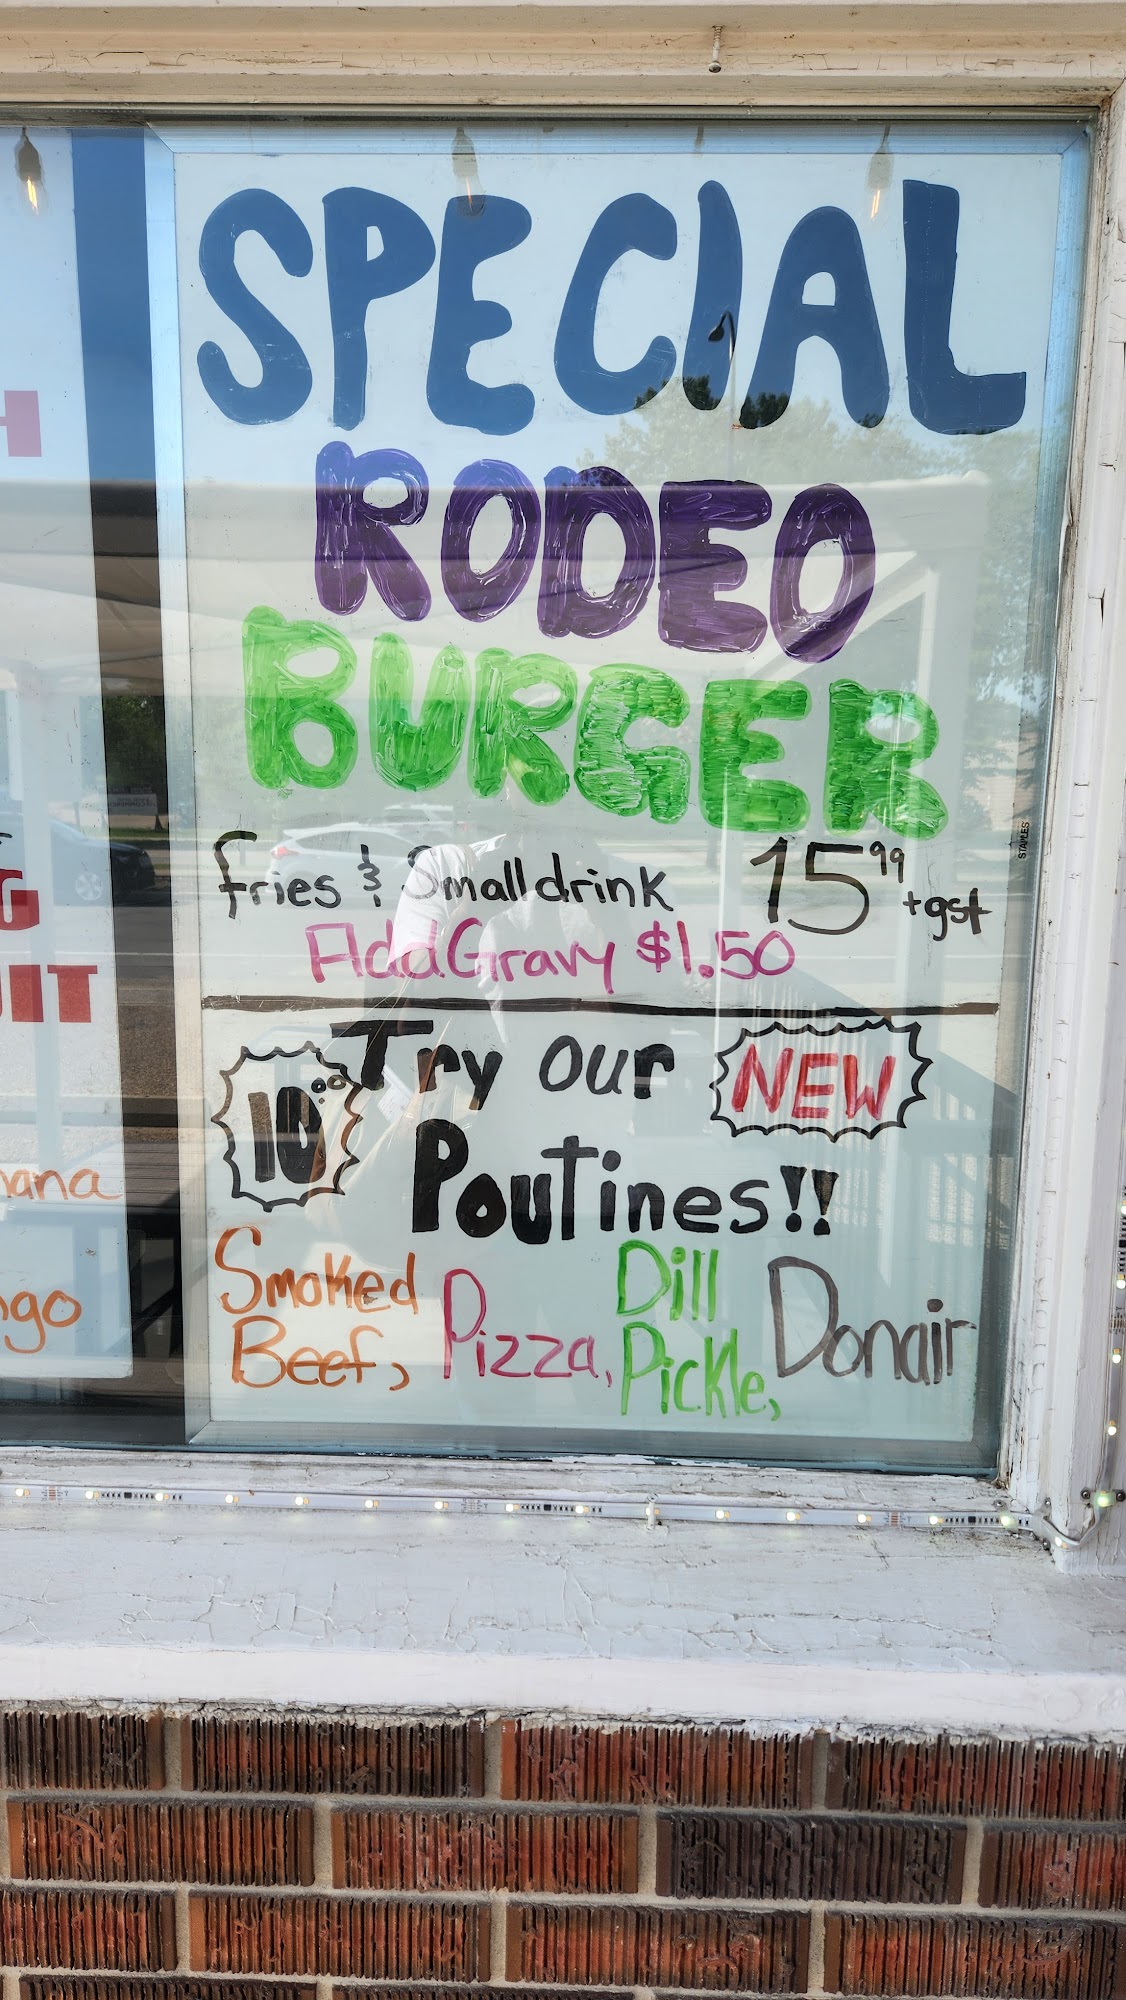 SPECIAL
RODEO
BURGER
fries & Small drink 15⁹⁹ +gst
Add Gravy $1.50
STAPLES
10⁰⁰ Try our NEW
Poutines!!
Smoked Beef, Pizza, Dill Pickle, Donair
H
G
UIT
nana
ngo